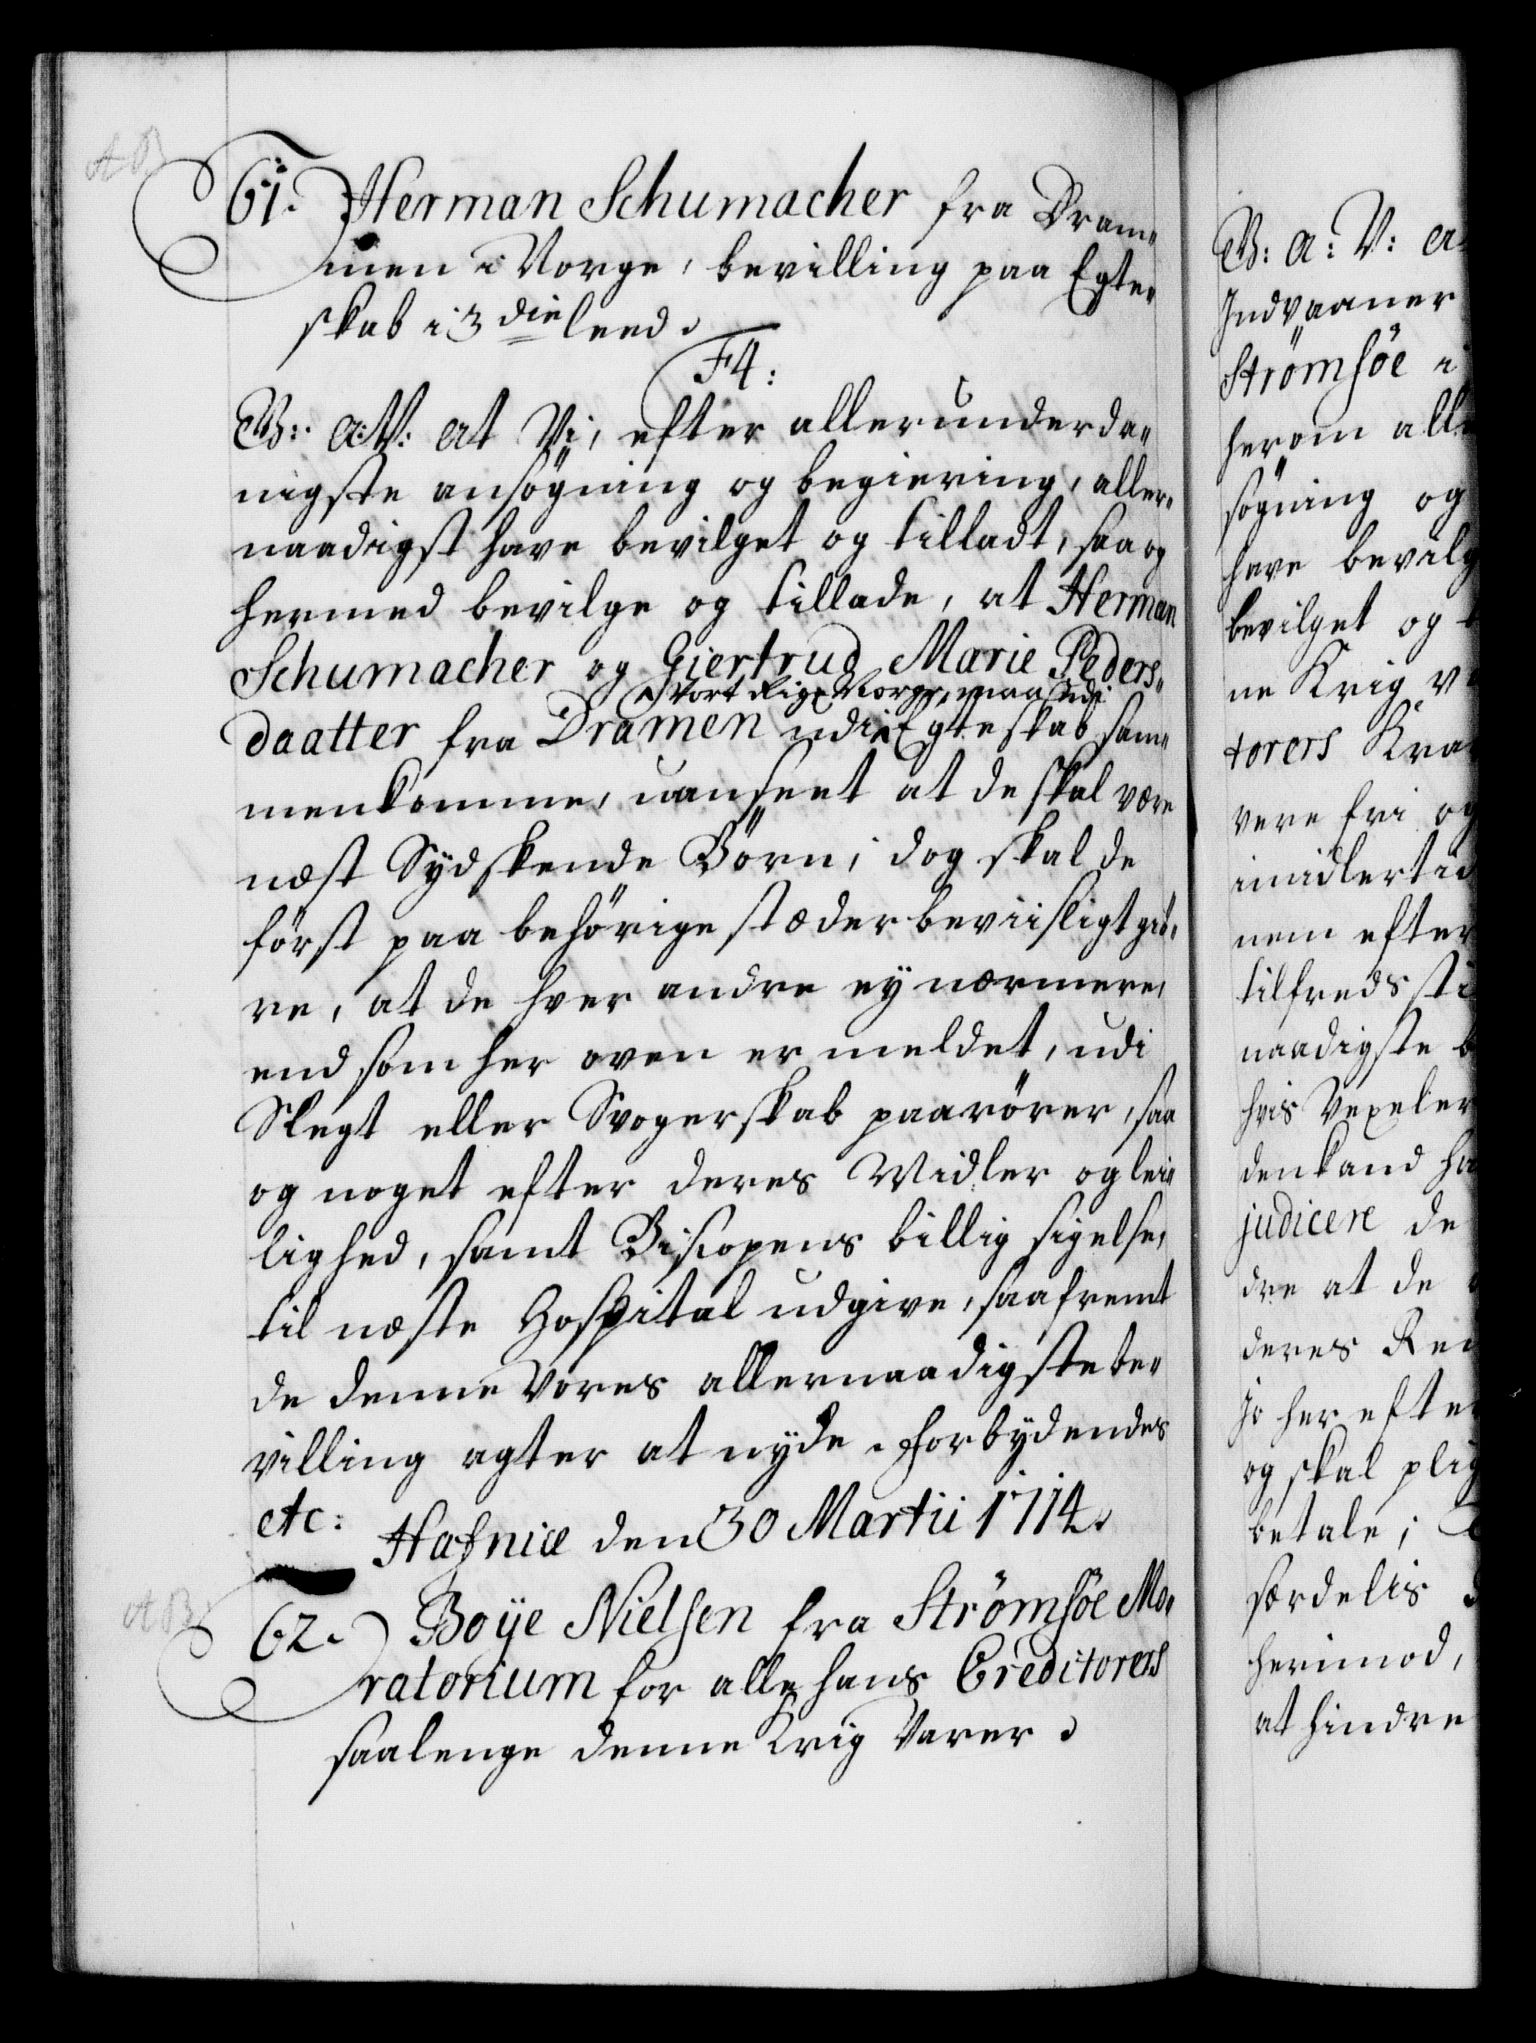 AB
61. Herman Schumacher fra Dram„
men i Norge, bevilling paa Egte„
skab i 3die leed.
F4:
G: A:V: At Vi, efter allerunderda„
nigste ansøgning og begiering, aller„
naadigst have bevilget og tilladt, saa og
hermed bevilge og tillade, at Herman
Schumacher og Giertrud Marie Peders„
i Vort Rige Norge, maa udi
daatter fra Dramen udi Egteskab sam„
menkomme, uanseet at de skal være
næst Sydskende Børn; dog skal de
først paa behörige stæder beviisligt giö„
re, at de hver andre ey nærmere,
end som her oven er meldet, udi
Slegt eller Svogerskab paarörer, saa
og noget efter deres Midler og lei„
lighed, samt Biscopens billig sigelse,
til næste Hospital udgive, saafremt
de denne Vores allernaadigste be„
villing agter at nyde. Forbydendes
etc: Hafniæ den 30 Martii 1714.
AB
62. Boÿe Nielsen fra Strømsöe Mo„
ratorium for alle hans Creditorers
saalenge denne Krig Varer.
G: A: V: A
Indvaaner
Strömsöe i
herom all
søgning og
have bevilg
bevilget og
ne Krig v
torers Kra
vere fri og
imidlertid
nem efter
tilfreds sti
naadigste b
hvis Vexeler
denkand ha
judicere de
dre at de
deres Re
jo her efter
og skal plig
betale;
særdelis
herimod,
at hindre